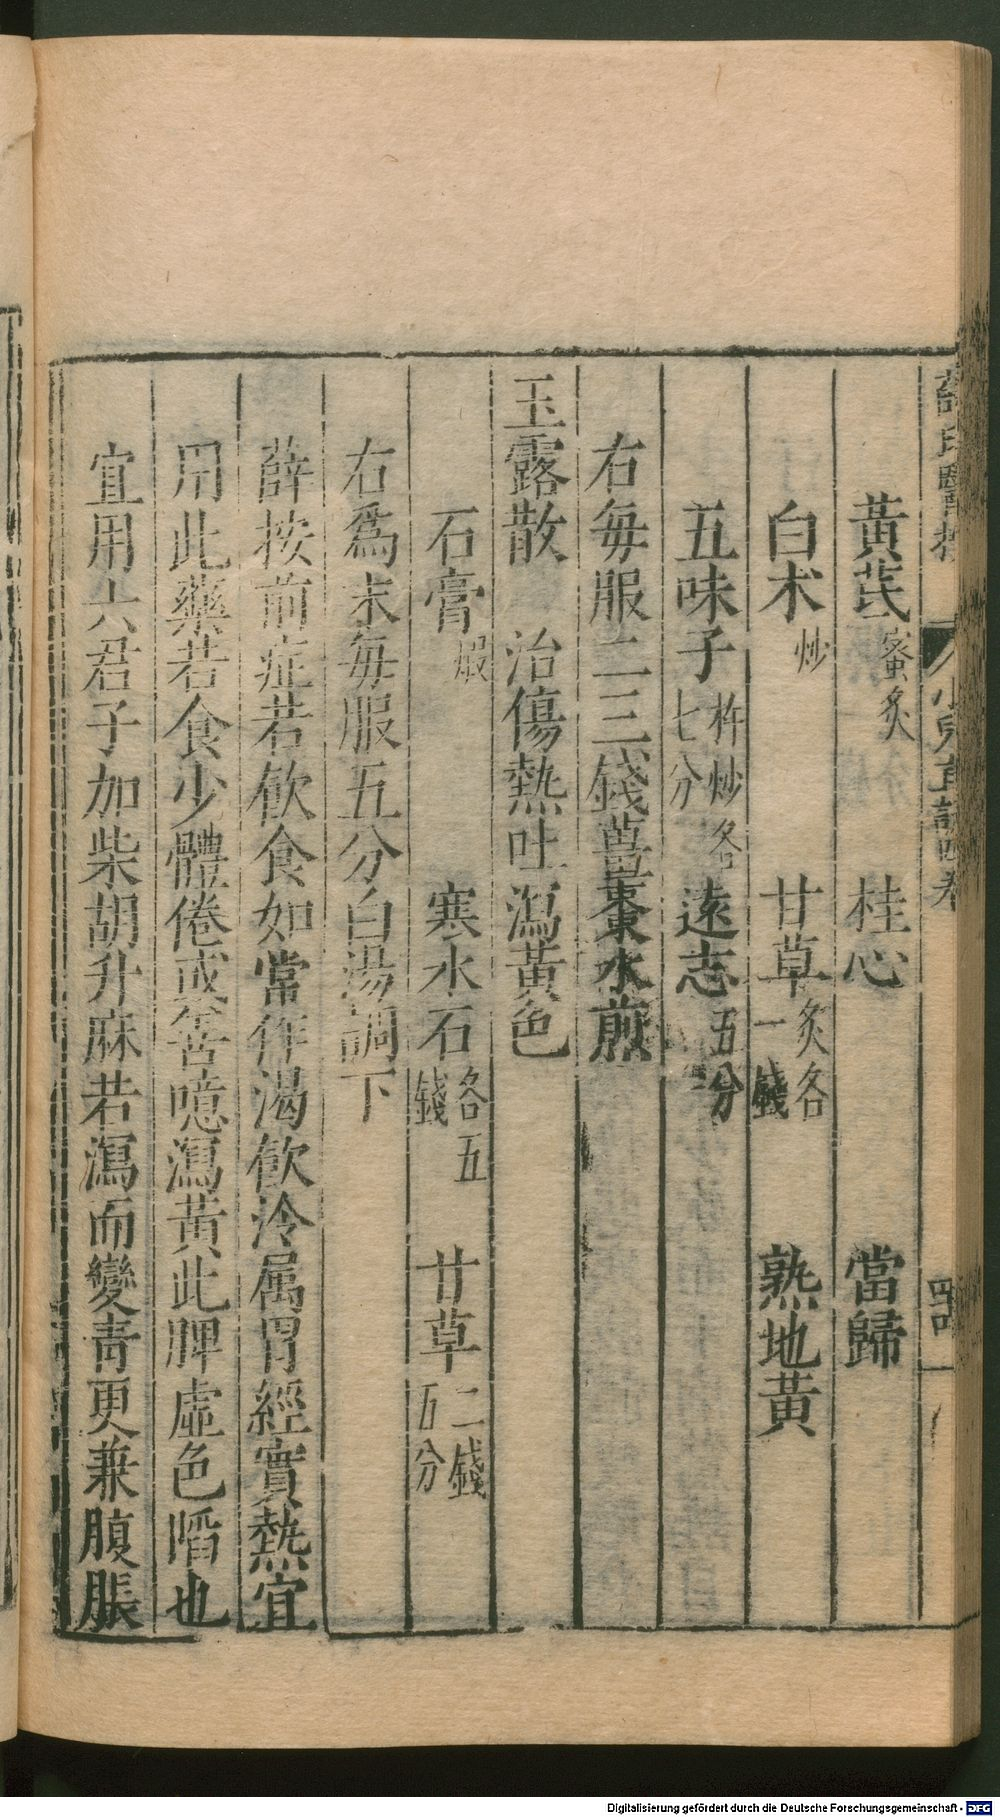 薛氏醫按 小兒直訣四卷 四 一
黃芪蜜炙 桂心 當歸
白术炒 甘草炙各一錢 熟地黃
五味子杵炒各七分 遠志五分
右每服二三錢薑棗水煎
玉露散 治傷熱吐瀉黃色
石膏煅 寒水石各五錢 甘草二錢五分
右爲末每服五分白湯調下
薛按前症若飲食如常作渴飲冷属胃經實熱宜
用此藥若食少體倦或㕮噫瀉黃此脾虛色㬱也
宜用六君子加柴胡升麻若瀉而變青更兼腹脹
Digitalisierung gefördert durch die Deutsche Forschungsgemeinschaft - DFG